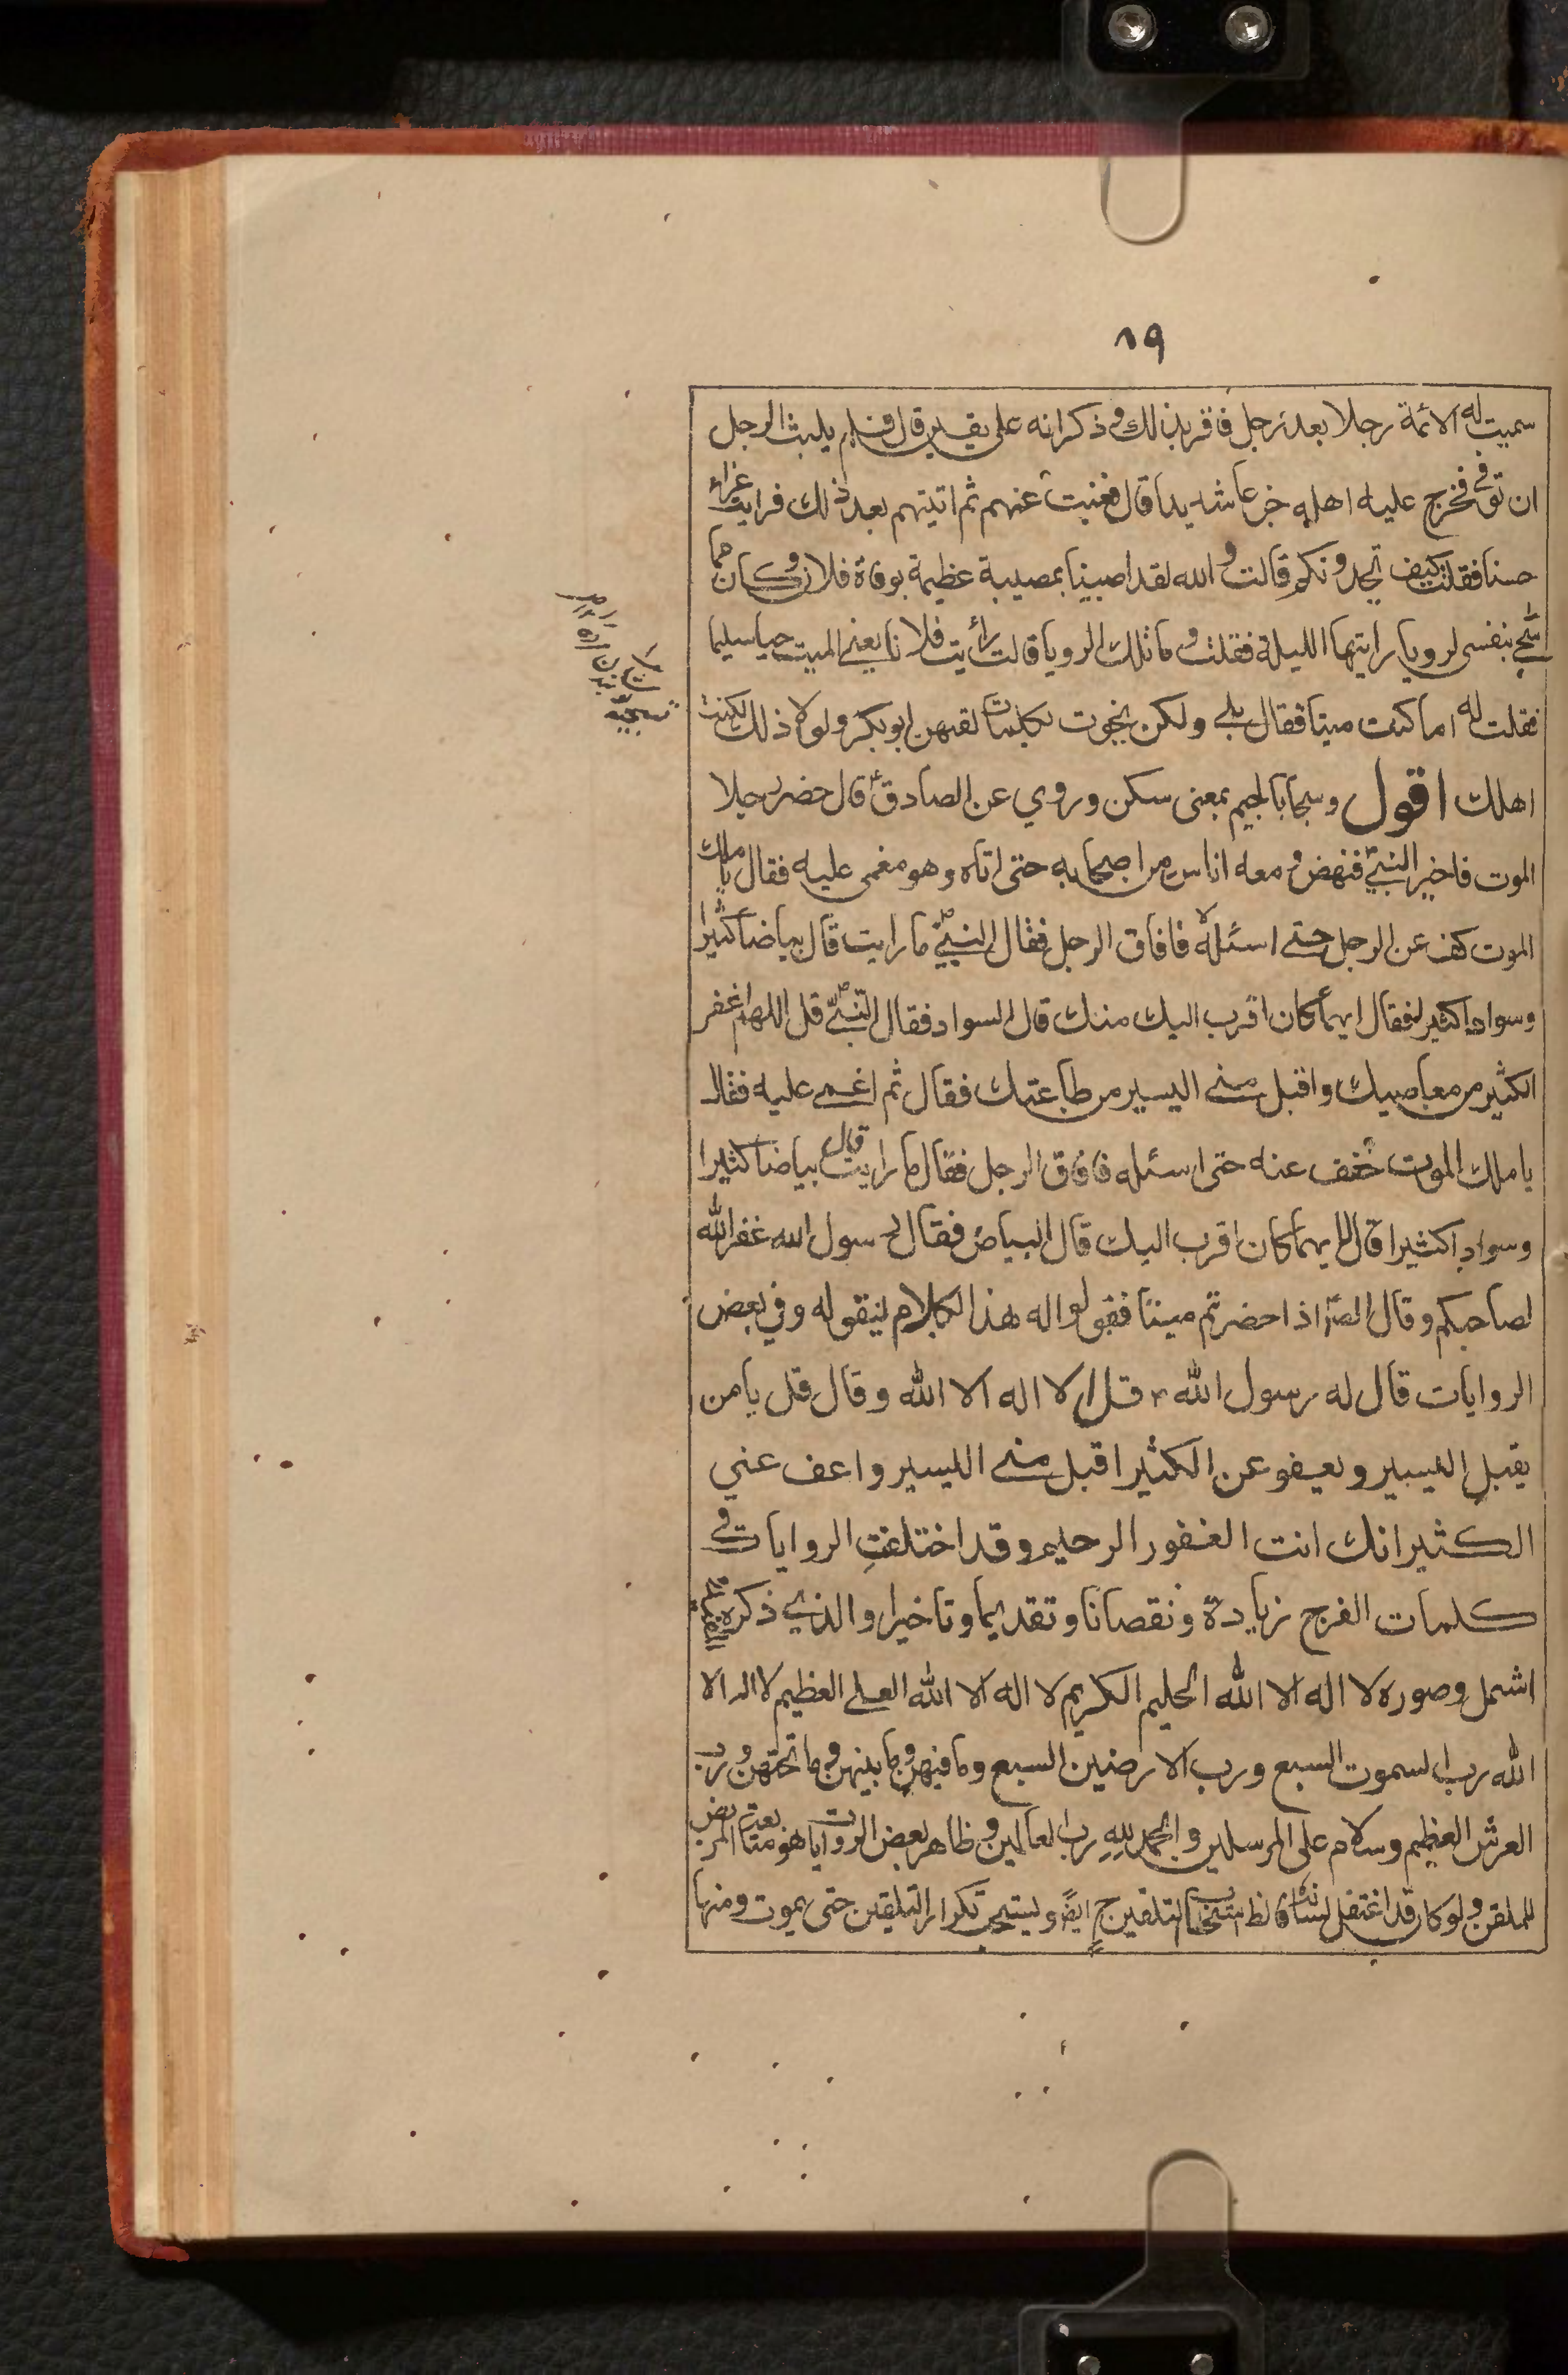 ١٩
سميت له الائمة رجلا بعد رجل فاقر بذلك وذكر انه على يقين قال فلم يلبث الرجل
ان توفي فخرج عليه اهله جزعا شديدا قال فغبت عنهم ثم اتيتهم بعد ذلك فرايت عزاء
حسنا فقلت كيف تجدونكم قالت والله لقد اصبنا بمصيبة عظيمة بوفاة فلان وكان مما
سجى بنفسي لرويا رايتها الليلة فقلت وما تلك الرويا قالت رأيت فلانا يعني الميت حيا سليما
فقلت له اما كنت ميتا فقال بلى ولكن نجوت بكلمات لقنهن ابو بكر ولولا ذلك لكنت
اهلك اقول وسجا بالجيم بمعنى سكن وروي عن الصادق ع قال حضر رجلا
الموت فاخبر النبي ص فنهض ومعه اناس من اصحابه حتى اتاه وهو مغمى عليه فقال يا ملك
الموت كف عن الرجل حتى اسئله فافاق الرجل فقال النبي ص ما رايت قال بياضا كثيرا
وسوادا كثيرا فقال ايهما كان اقرب اليك منك قال السواد فقال النبي ص قل اللهم اغفر
الكثير من معاصيك واقبل مني اليسير من طاعتك فقال ثم اغمى عليه فقال
يا ملك الموت خفف عنه حتى اسئله فافاق الرجل فقال ما رايت قال بياضا كثيرا
وسوادا كثيرا قال ايهما كان اقرب اليك قال البياض فقال رسول الله غفر الله
لصاحبكم وقال الص اذا حضرتم ميتا فقولوا له هذا الكلام ليقوله وفي بعض
الروايات قال له رسول الله ص قل لا اله الا الله وقال قل يا من
يقبل اليسير ويعفو عن الكثير اقبل مني اليسير واعف عني
الكثير انك انت الغفور الرحيم وقد اختلفت الروايات في
كلمات الفرج زيادة ونقصانا وتقديما وتاخيرا والذي ذكره
اشمل وصوره لا اله الا الله الحليم الكريم لا اله الا الله العلي العظيم لا اله الا
الله رب السموت السبع ورب الارضين السبع وما فيهن وما بينهن وما تحتهن ورب
العرش العظيم وسلام على المرسلين والحمد لله رب العالمين وظاهر بعض الروايات هو متابعة المريض
للملقن ولو كان قد اعتقل لسانه فالظ استحباب التلقين ح ايضً ويستحب تكرار التلقين حتى يموت ومنها